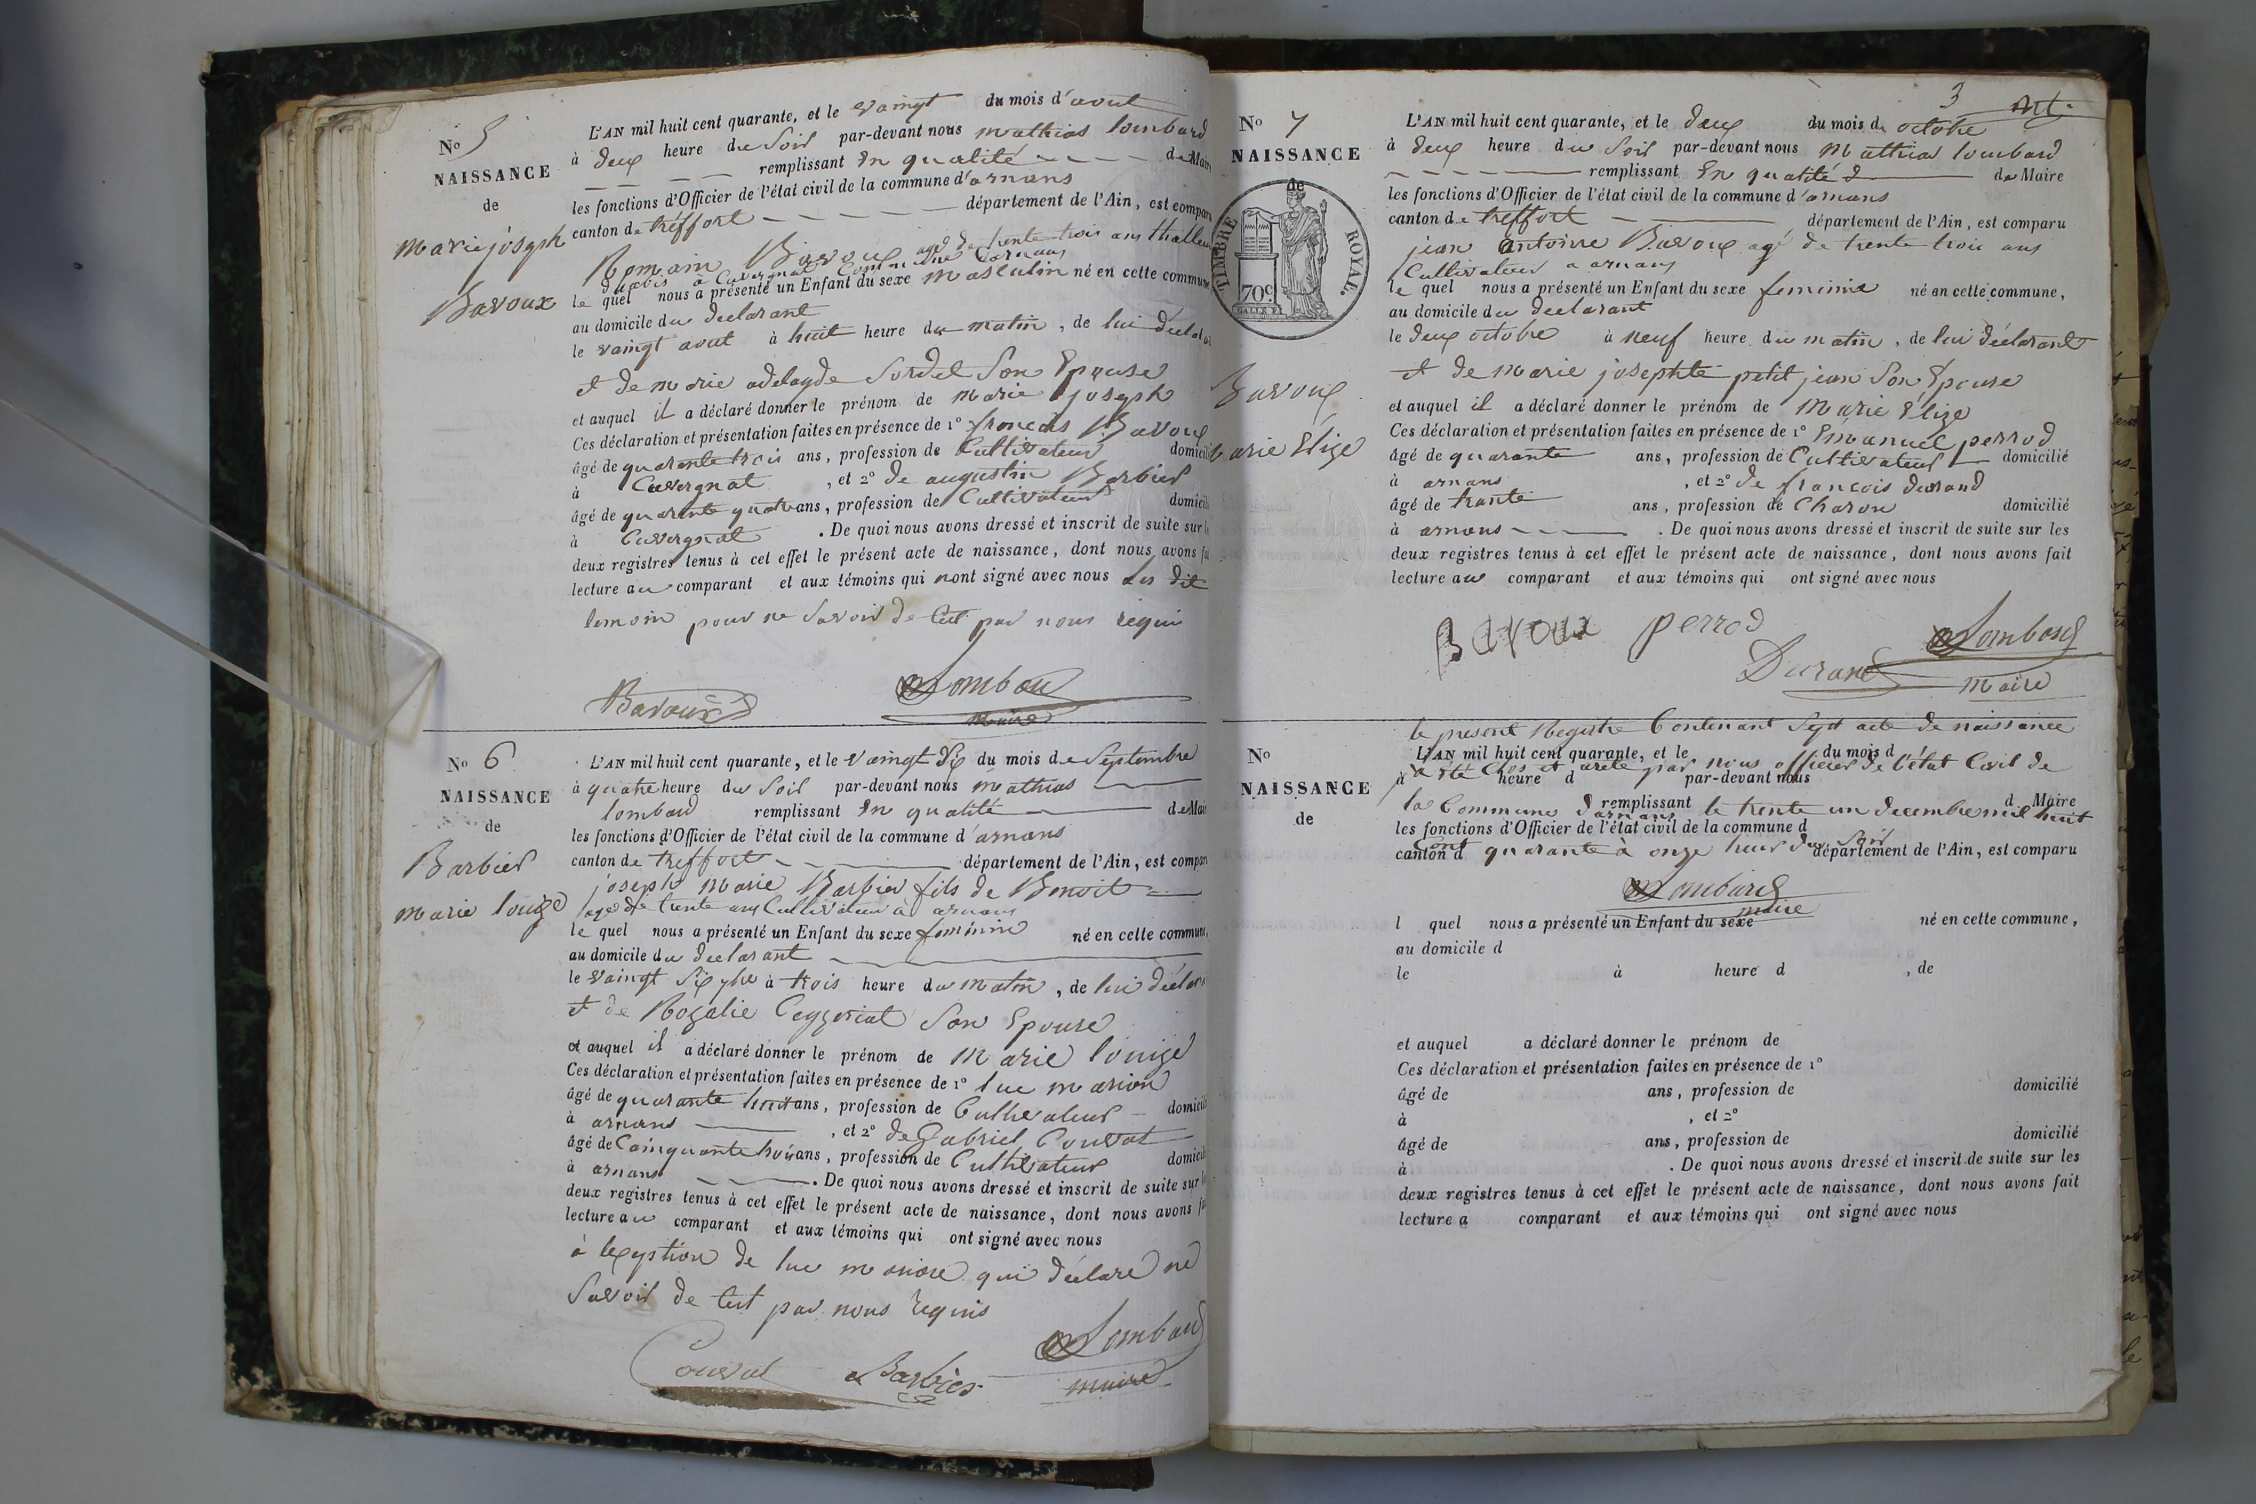 No 5
NAISSANCE
de
marie joseph
Bavoux
L'AN mil huit cent quarante, et le vaingt du mois d'aout
à deux heure du Soir par-devant nous mathias lombard
remplissant En qualité de Maire
les fonctions d'Officier de l'état civil de la commune d'arnans
canton de tréffort département de l'Ain, est comparu
Romain Bavoux agé de trente trois ans
a Cuvergnat Commune d'arnans
le quel nous a présenté un Enfant du sexe masculin né en cette commune
au domicile du declarant
le vaingt aout à huit heure du matin, de lui déclarant
et de marie adelayde Sordet Son Epouse
et auquel il a déclaré donner le prénom de marie joseph
Ces déclaration et présentation faites en présence de 1° francois Bavoux
âgé de quarante trois ans, profession de Cultivateur domicilié
à Cuvergnat, et 2° de augustin Barbier
âgé de quarante quatre ans, profession de Cultivateur domicilié
à Cuvergnat. De quoi nous avons dressé et inscrit de suite sur les
deux registres tenus à cet effet le présent acte de naissance, dont nous avons fait
lecture au comparant et aux témoins qui nont signé avec nous les dit
temoin pour ne Savoir de Ceit par nous requi
Bavoux Lombard
maire
No 6
NAISSANCE
de
Barbier
marie louize
L'AN mil huit cent quarante, et le vaingt Six du mois de Septembre
à quatre heure du Soir par-devant nous mathias
lombard remplissant En qualité de Maire
les fonctions d'Officier de l'état civil de la commune d'arnans
canton de treffort département de l'Ain, est comparu
joseph marie Barbier fils de Benoit
agé de trente ans Cultivateur à arnans
le quel nous a présenté un Enfant du sexe feminin né en cette commune,
au domicile du declarant
le vaingt Six à trois heure du matin, de lui déclarant
et de Rozalie Ceyzeriat Son Epouse
et auquel il a déclaré donner le prénom de Marie louize
Ces déclaration et présentation faites en présence de 1° luc marion
âgé de quarante huit ans, profession de Cultivateur domicilié
à arnans, et 2° de Gabriel Couvat
âgé de Cainquante ans, profession de Cultivateur domicilié
à arnans. De quoi nous avons dressé et inscrit de suite sur les
deux registres tenus à cet effet le présent acte de naissance, dont nous avons fait
lecture au comparant et aux témoins qui ont signé avec nous
à lexpstion de luc marion qui déclare ne
Savoir de Ceit par nous requis
Couvat Barbier Lombard
maire
3
No 7
NAISSANCE
de
TIMBRE ROYAL.
70c
Bavoux
Marie Elize
L'AN mil huit cent quarante, et le deux du mois de octobre
à deux heure du Soir par-devant nous Mathias lombard
remplissant En qualité d de Maire
les fonctions d'Officier de l'état civil de la commune d'arnans
canton de treffort département de l'Ain, est comparu
jean antoine Bavoux agé de trente trois ans
Cultivateur a arnans
le quel nous a présenté un Enfant du sexe feminine né en cette commune,
au domicile du declarant
le deux octobre à neuf heure du matin, de lui déclarant
et de marie josephte petit jean Son Epouse
et auquel il a déclaré donner le prénom de Marie Elize
Ces déclaration et présentation faites en présence de 1° Emanuel perrod
âgé de quarante ans, profession de Cultivateur domicilié
à arnans, et 2° de francois durand
âgé de trante ans, profession de Charon domicilié
à arnans. De quoi nous avons dressé et inscrit de suite sur les
deux registres tenus à cet effet le présent acte de naissance, dont nous avons fait
lecture au comparant et aux témoins qui ont signé avec nous
Bavoux perrod Lombard
Durand maire
le present Registre Contenant Sept acte de naissance
No
NAISSANCE
de
L'AN mil huit cent quarante, et le du mois d
a été Clos et areté par nous officier de l'état Civil de
à heure d par-devant nous
la Commune d'arnans le trente un decembre mil huit
remplissant d Maire
les fonctions d'Officier de l'état civil de la commune d
Cent quarante à onze heure du Soir
canton d département de l'Ain, est comparu
Lombard
maire
l quel nous a présenté un Enfant du sexe né en cette commune,
au domicile d
le à heure d, de
et auquel a déclaré donner le prénom de
Ces déclaration et présentation faites en présence de 1°
âgé de ans, profession de domicilié
à, et 2°
âgé de ans, profession de domicilié
à. De quoi nous avons dressé et inscrit de suite sur les
deux registres tenus à cet effet le présent acte de naissance, dont nous avons fait
lecture a comparant et aux témoins qui ont signé avec nous